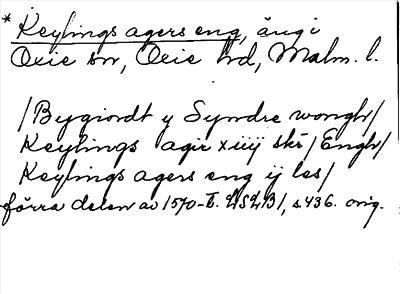 * Keylings agers eng, äng i
Oxie sn, Oxie hd, Malm. l.
/Bygiordt y Syndre wongh/
Keylings agir xiiij skr /Engh/
Keylings agers eng ij les/
förra delen av 1570-t. LSLB1, s. 436. orig.